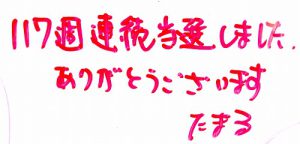 117週連続当選しました.
ありがとうございます
たまる